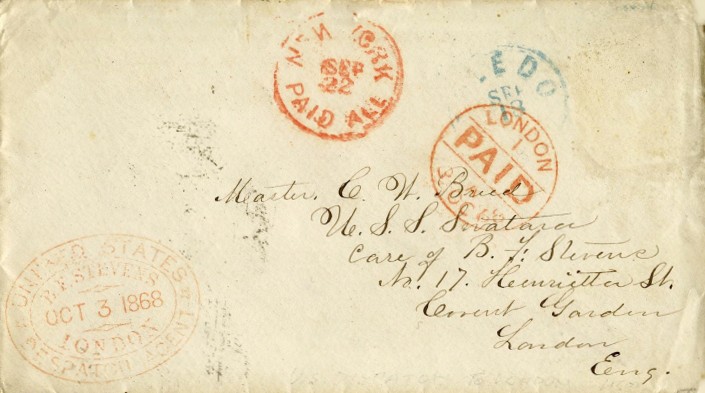 NEW YORK
SEP
22
PAID ALL
LEDO
SEP
LONDON
PAID
3 OC 68
Master. C. W. Breed
U. S. S. Swatara
Care of B. F. Stevens
No. 17. Henrietta St.
Covent Garden
London
Eng.
UNITED STATES
B.F. STEVENS
OCT 3 1868
LONDON
DESPATCH AGENT